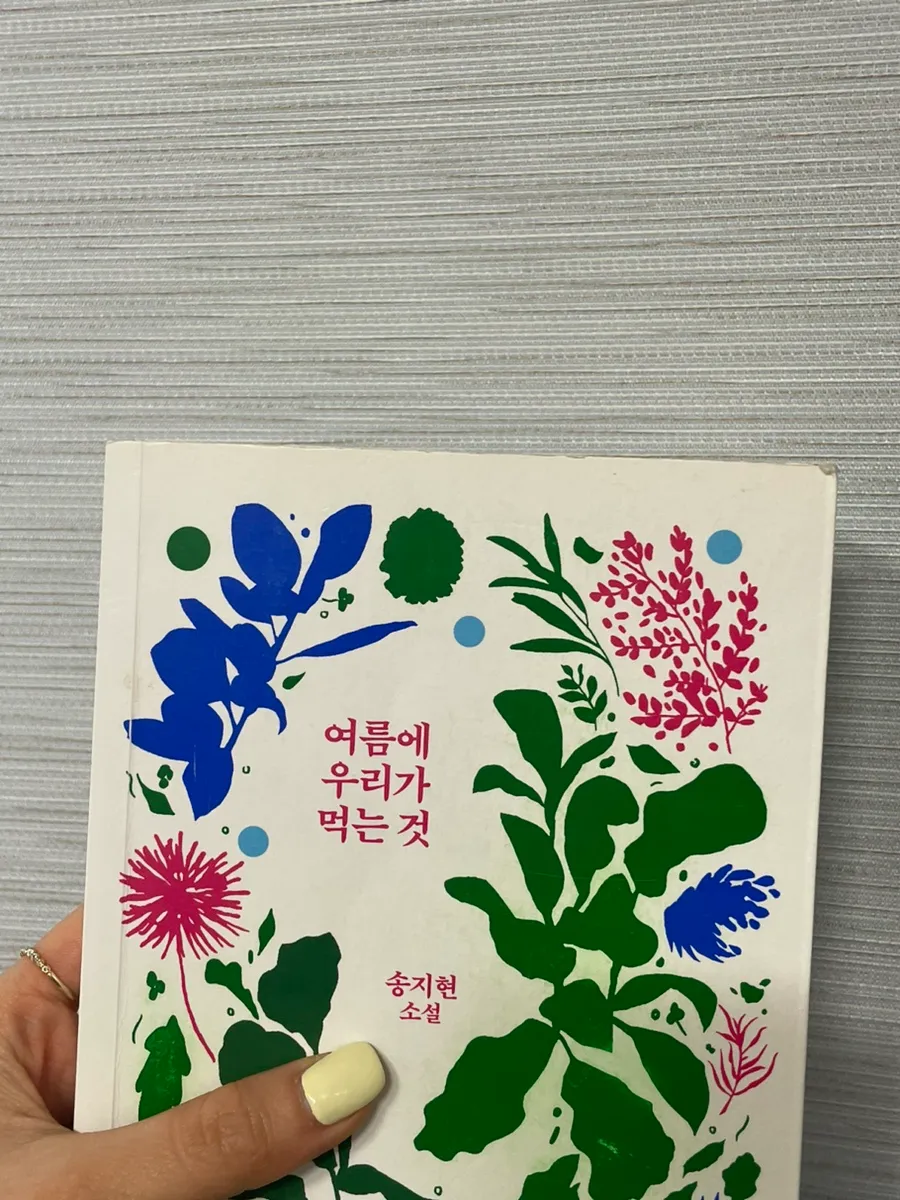 여름에
우리가
먹는 것
송지현
소설